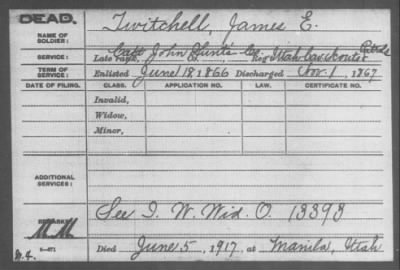 DEAD.
NAME OF SOLDIER:
Twitchell, James E.
SERVICE:
Capt John Clint's Co.
Late rank, Reg't Utah Cav. scouts
TERM OF SERVICE:
Enlisted June 18, 1866 Discharged Nov. 1, 1867
DATE OF FILING. CLASS. APPLICATION NO. LAW. CERTIFICATE NO.
Invalid,
Widow,
Minor,
ADDITIONAL SERVICES:
See I. W. Wid. O. 13393
REMARKS:
Died June 5, 1917, at Manila, Utah